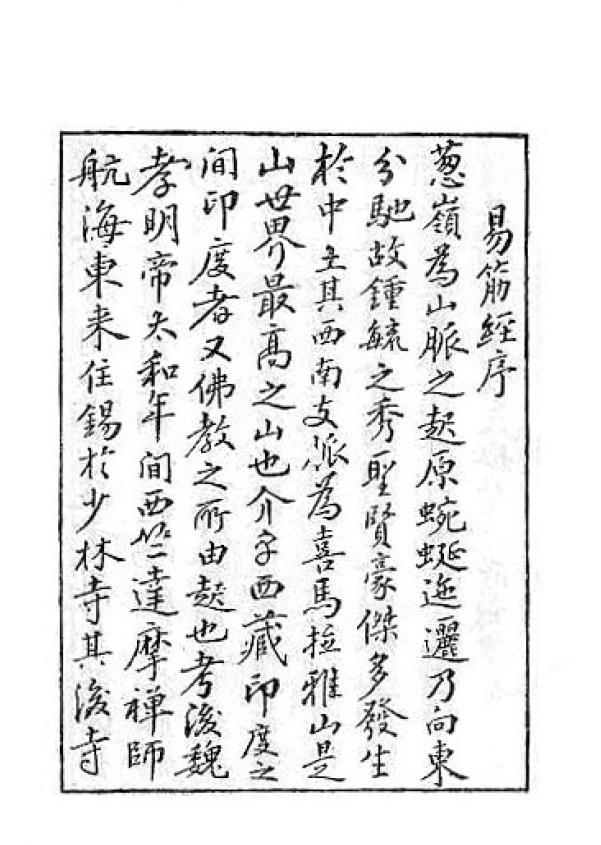 易筋經序
葱嶺為山脈之起原蜿蜒迤邐乃向東
分馳故鍾毓之秀聖賢豪傑多發生
於中土其西南支派為喜馬拉雅山是
山世界最高之山也介乎西藏印度之
间印度者又佛教之所由起也考後魏
孝明帝太和年间西竺達摩禅師
航海東来住錫於少林寺其後寺